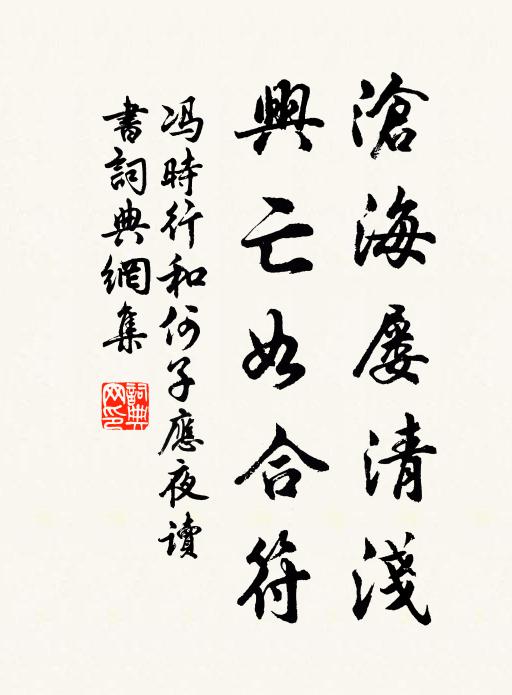 滄海屡清淺
興亡如合符
冯時行和何子應夜讀
書詞典網集
詞典
网印